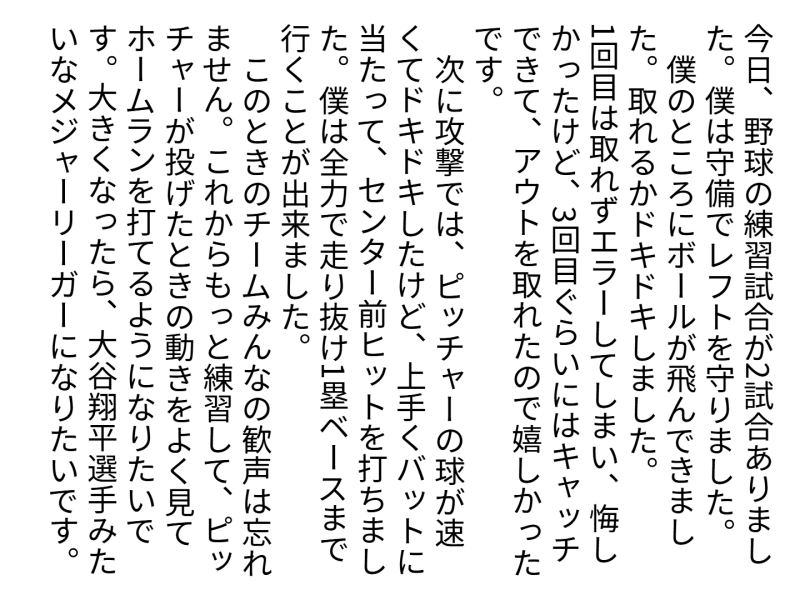 今日、野球の練習試合が2試合ありまし
た。僕は守備でレフトを守りました。
　僕のところにボールが飛んできまし
た。取れるかドキドキしました。
1回目は取れずエラーしてしまい、悔し
かったけど、3回目ぐらいにはキャッチ
できて、アウトを取れたので嬉しかった
です。
　次に攻撃では、ピッチャーの球が速
くてドキドキしたけど、上手くバットに
当たって、センター前ヒットを打ちまし
た。僕は全力で走り抜け1塁ベースまで
行くことが出来ました。
　このときのチームみんなの歓声は忘れ
ません。これからもっと練習して、ピッ
チャーが投げたときの動きをよく見て
ホームランを打てるようになりたいで
す。大きくなったら、大谷翔平選手みた
いなメジャーリーガーになりたいです。